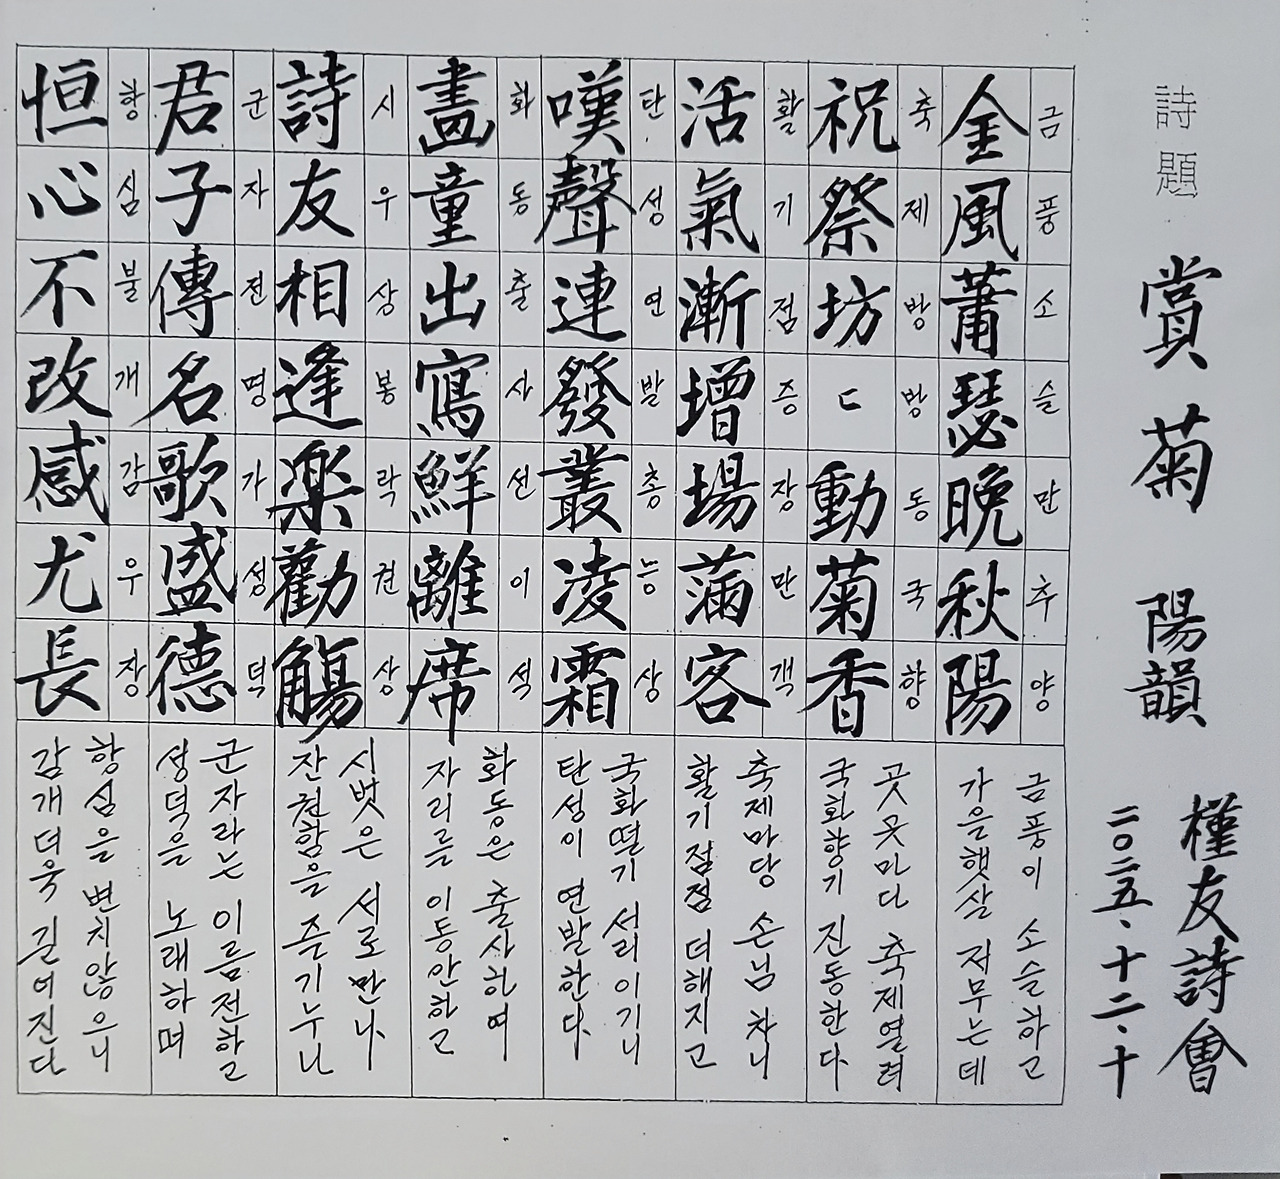 詩題 賞菊 陽韻
槿友詩會
二〇二五.十二.十
金風蕭瑟晩秋陽
금풍소슬만추양
금풍이 소슬하고
가을햇살 저무는데
祝祭坊ㄷ動菊香
축제방방동국향
곳곳마다 축제열려
국화향기 진동한다
活氣漸增場滿客
활기점증장만객
축제마당 손님 차니
활기점점 더해지고
嘆聲連發叢凌霜
탄성연발총능상
국화떨기 서리이기니
탄성이 연발한다
畵童出寫鮮離席
화동출사선이석
화동은 출사하여
자리를 이동안하고
詩友相逢楽勸觴
시우상봉락권상
시벗은 서로만나
잔권함을 즐기누나
君子傳名歌盛德
군자전명가성덕
군자라는 이름전하고
성덕을 노래하며
恒心不改感尤長
항심불개감우장
항심을 변치않으니
감개더욱 길어진다